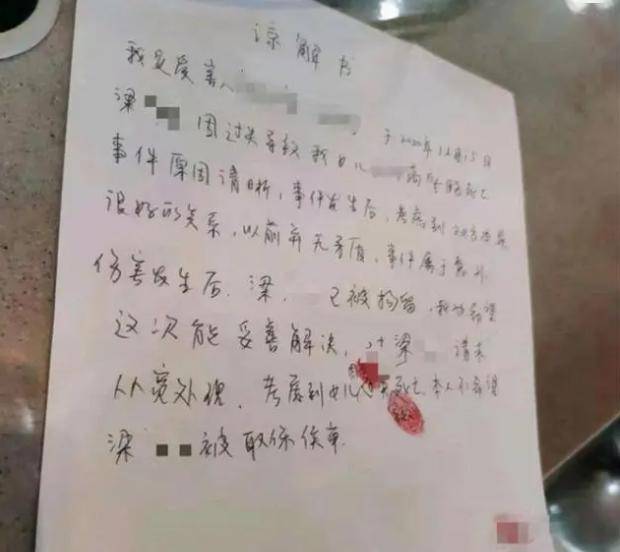 谅解书
我是受害人
梁 于2020年12月15日
因过失导致我女儿 高坠死亡
事件原因清晰,事件发生后,考虑到双方
很好的关系,以前并无矛盾,事件属于意外
伤害发生后,梁 已被拘留,我方希望
这次能妥善解决,对梁 请求
从宽处理,考虑到女儿 死亡,本人不希望
梁 被取保候审